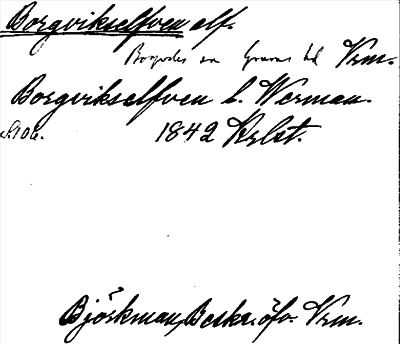 Borgvikselfven elf.
Borgviks sn Grums hd Vrm.
Borgvikselfven l. Werman.
S. 106. 1842 Krlst.
Björkman, Beskr. öfv. Vrm.